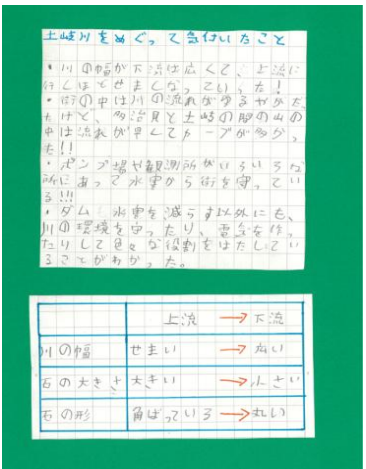 土岐川をめぐって気付いたこと
・川の幅が下流は広くて、上流に
行くほどせまくなっていった！
・街の中は川の流れがゆるやかだ
たけど、多治見と土岐の間の山の
中は流れが早くてカーブが多かっ
た!!
・ポンプ場や観測所がいろいろな
所にあって水害から街を守ってい
る!!!
・ダムは水害を減らす以外にも、
川の環境を守ったり、電気を作っ
たりして色々な役割をはたしてい
ることがわかった。
上流 → 下流
川の幅 せまい → 広い
石の大きさ 大きい → 小さい
石の形 角ばっている → 丸い